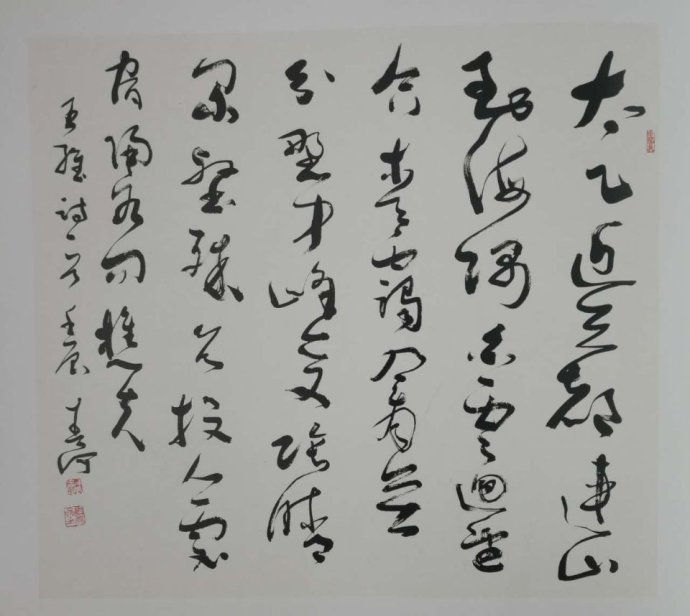 太乙近天都連山
到海隅白雲迴望
合青靄入看無
分野中峰變陰晴
眾壑殊欲投人處
宿隔水問樵夫
王維詩一首壬辰春河